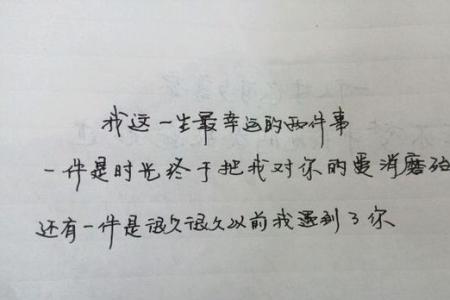 我这一生最幸运的两件事
一件是时光终于把我对你的爱消磨殆
还有一件是很久很久以前我遇到了你